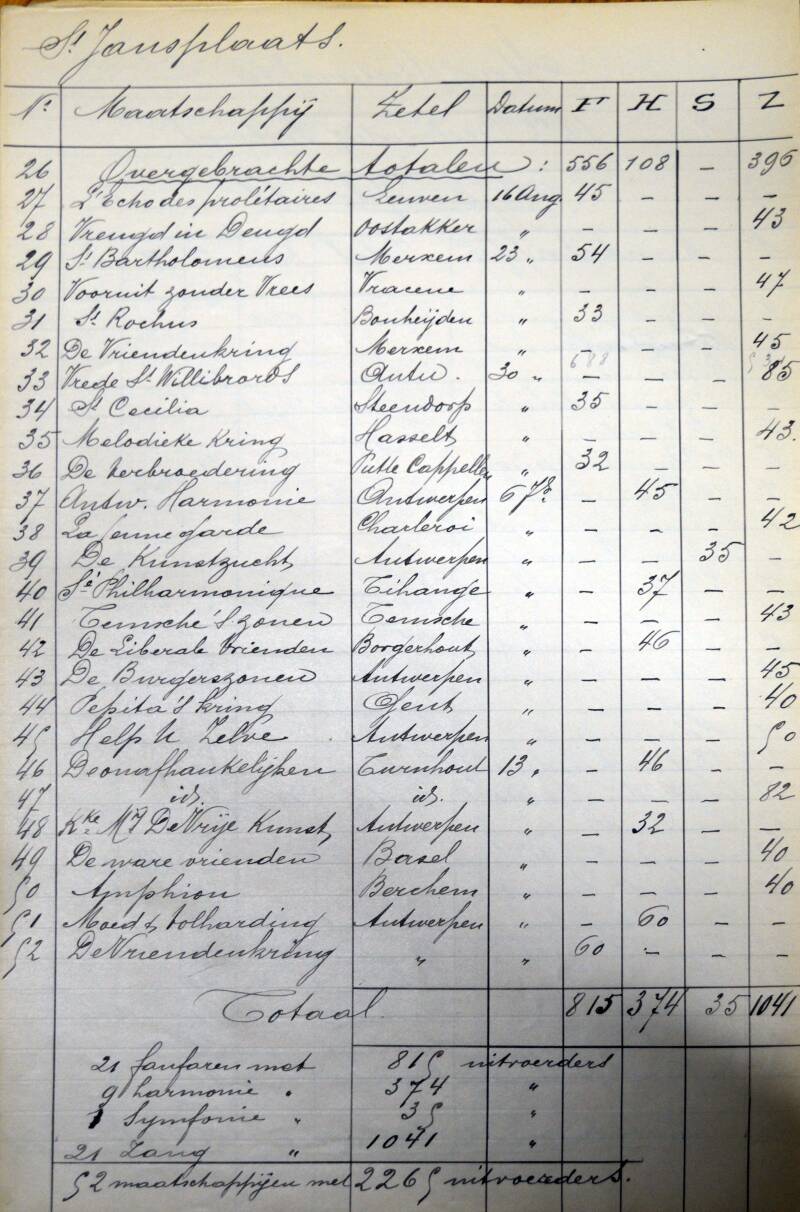 St Jansplaats.
No Maatschappij Zetel Datum F H S Z
26 Overgebrachte totalen : 556 108 — 396
27 L'Echo des prolétaires Leuven 16 Aug 45 — — —
28 Vreugd in Deugd Oostakker " — — — 43
29 St Bartholomeus Merxem 23 " 54 — — —
30 Vooruit zonder Vrees Vracene " — — — 47
31 St Rochus Bonheijden " 33 — — —
32 De Vriendenkring Merxem " — — — 45
33 Vrede St Willibrords Antw. 30 " — — — 85
34 St Cecilia Steendorp " 35 — — —
35 Melodieke Kring Hasselt " — — — 43.
36 De Verbroedering Putte Cappellen " 32 — — —
37 Antw. Harmonie Antwerpen 6 7be — 45 — —
38 La Jeune Garde Charleroi " — — — 42
39 De Kunstzucht Antwerpen " — — 35 —
40 Sté Philharmonique Tihange " — 37 — —
41 Temsche's zonen Temsche " — — — 43
42 De Liberale Vrienden Borgerhout " — 46 — —
43 De Burgerszonen Antwerpen " — — — 45
44 Pepita's kring Gent " — — — 40
45 Help U Zelve Antwerpen " — — — 50
46 De onafhankelijken Turnhout 13 " — 46 — —
47 id. id. " — — — 82
48 Kke Mij De Vrije Kunst Antwerpen " — 32 — —
49 De ware vrienden Basel " — — — 40
50 Amphion Berchem " — — — 40
51 Moed & Volharding Antwerpen " — 60 — —
52 De Vriendenkring " " 60 — — —
Totaal. 815 374 35 1041
21 fanfaren met 815 uitvoerders
9 harmonie " 374 "
1 Symfonie " 35 "
21 Zang " 1041 "
52 maatschappijen met 2265 uitvoerders.